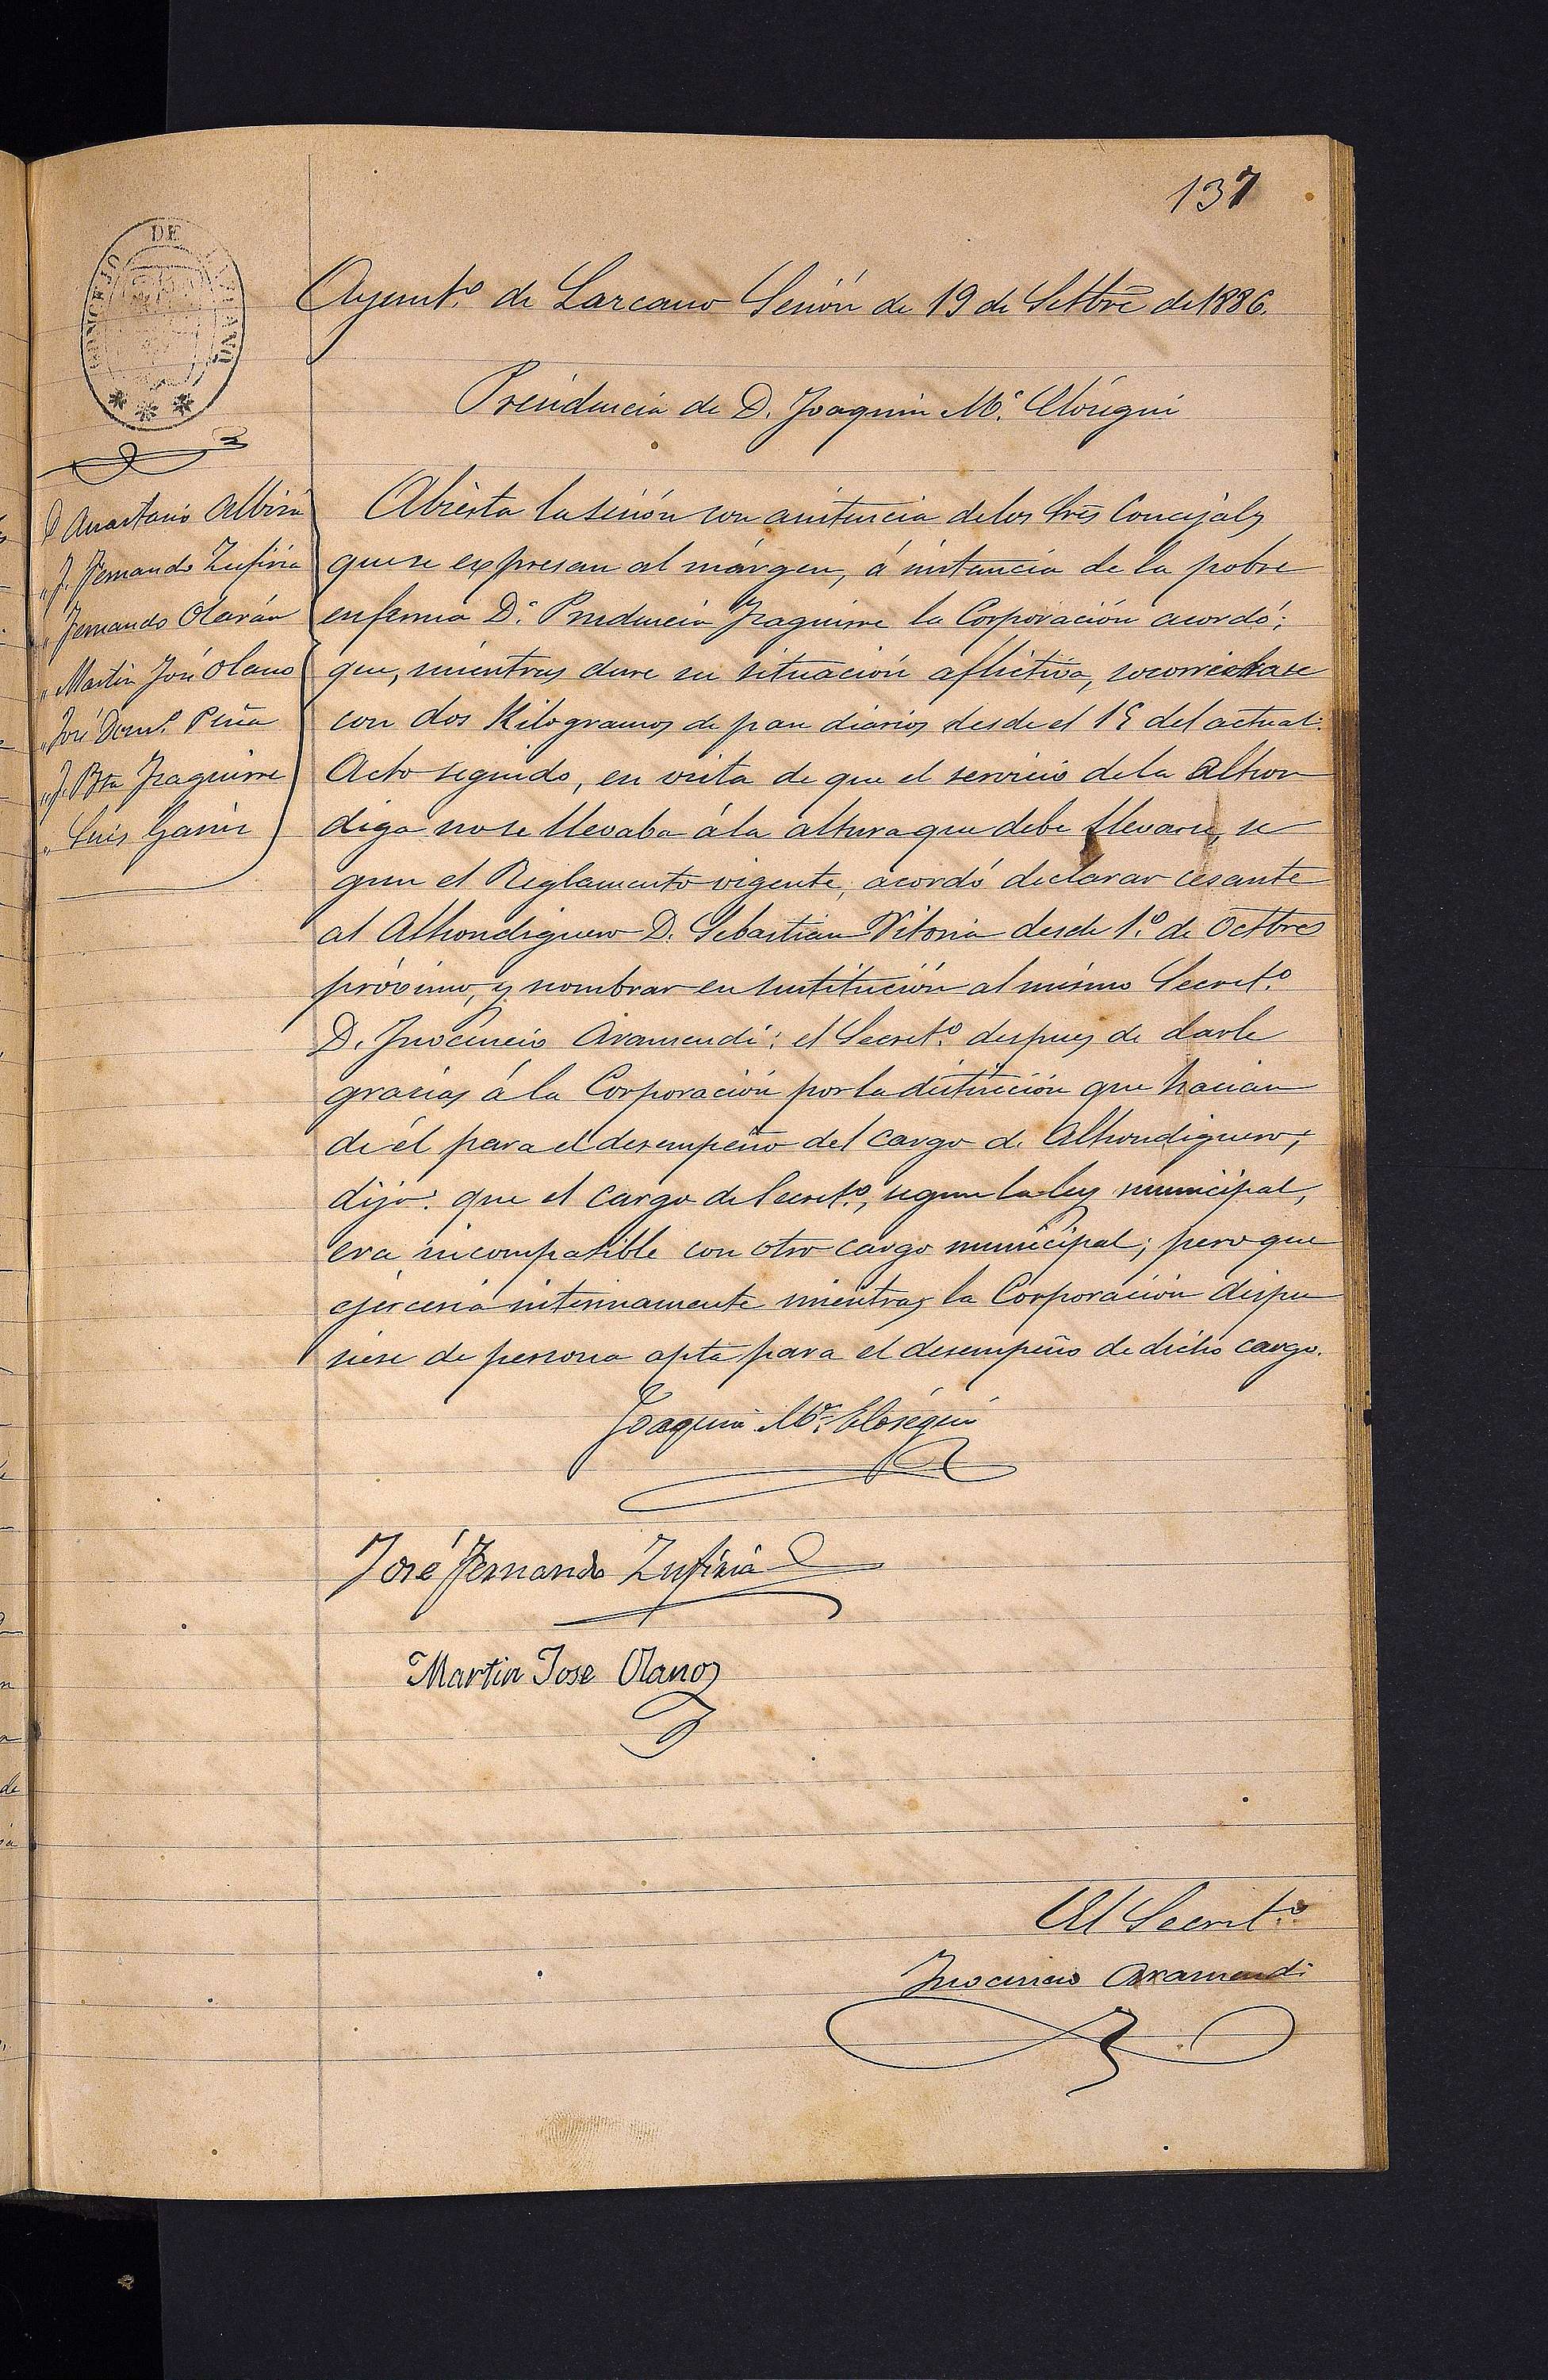 137
CONCEJO DE LAZCANO
Ayunt.º de Lazcano Sesión de 19 de Setbre de 1886.
Presidencia de D. Joaquin M.ª Elósegui
D Anastasio Albisu
„ J. Fernando Zufiria
„ Fernando Olarán
„ Martin José Olano
„ José Dom.º Peña
„ J. Bta Yzaguirre
„ Luis Garin
Abierta la sesión con asistencia de los Sres Concejales
que se expresan al márgen, á instancia de la pobre
enferma D.ª Prudencia Yzaguirre la Corporación acordó;
que, mientras dure su situación aflictiva,
con dos Kilogramos de pan diarios desde el del actual.
Acto seguido, en vista de que el servicio de la Alhon
diga no se llevaba á la altura que debe llevarse, se
gun el Reglamento vigente, acordó declarar cesante
al Alhondiguero D. Sebastian Vitoria desde 1.º de Octbre
próximo, y nombrar en sustitución al mismo Secret.º
D. Ynocencio Aramendi: el Secret.º despues de darle
gracias á la Corporación por la distinción que hacian
de él para el desempeño del cargo de Alhondiguero,
dijo: que el cargo de Secret.º, segun la ley municipal,
era incompatible con otro cargo municipal; pero que
ejerceria interinamente mientras la Corporación dispu
siese de persona apta para el desempeño de dicho cargo.
Joaquin M.ª Elósegui
José Fernando Zufiria
Martin Jose Olano
El Secret.º
Ynocencio Aramendi